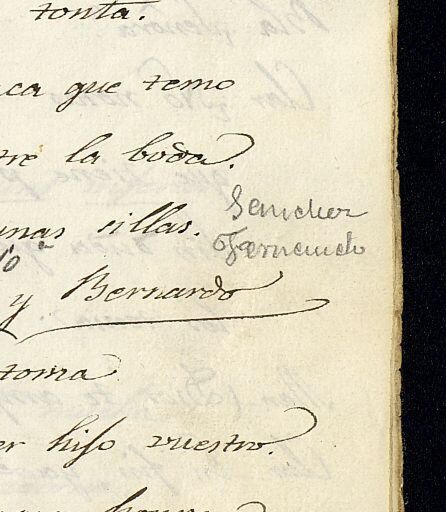 tonta.
ca que temo
la boda.
unas sillas.
Sanchez
Fernando
y Bernardo
toma
er hijo vuestro.